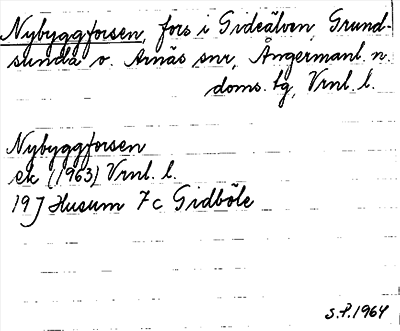 Nybyggforsen, fors i Gideälven, Grund-
sunda o. Arnäs snr, Ångermanl. n.
doms. tg, Vrnl. l.
Nybyggforsen
ek (1963) Vrnl. l.
19 J Husum 7c Gidböle
S.P. 1964